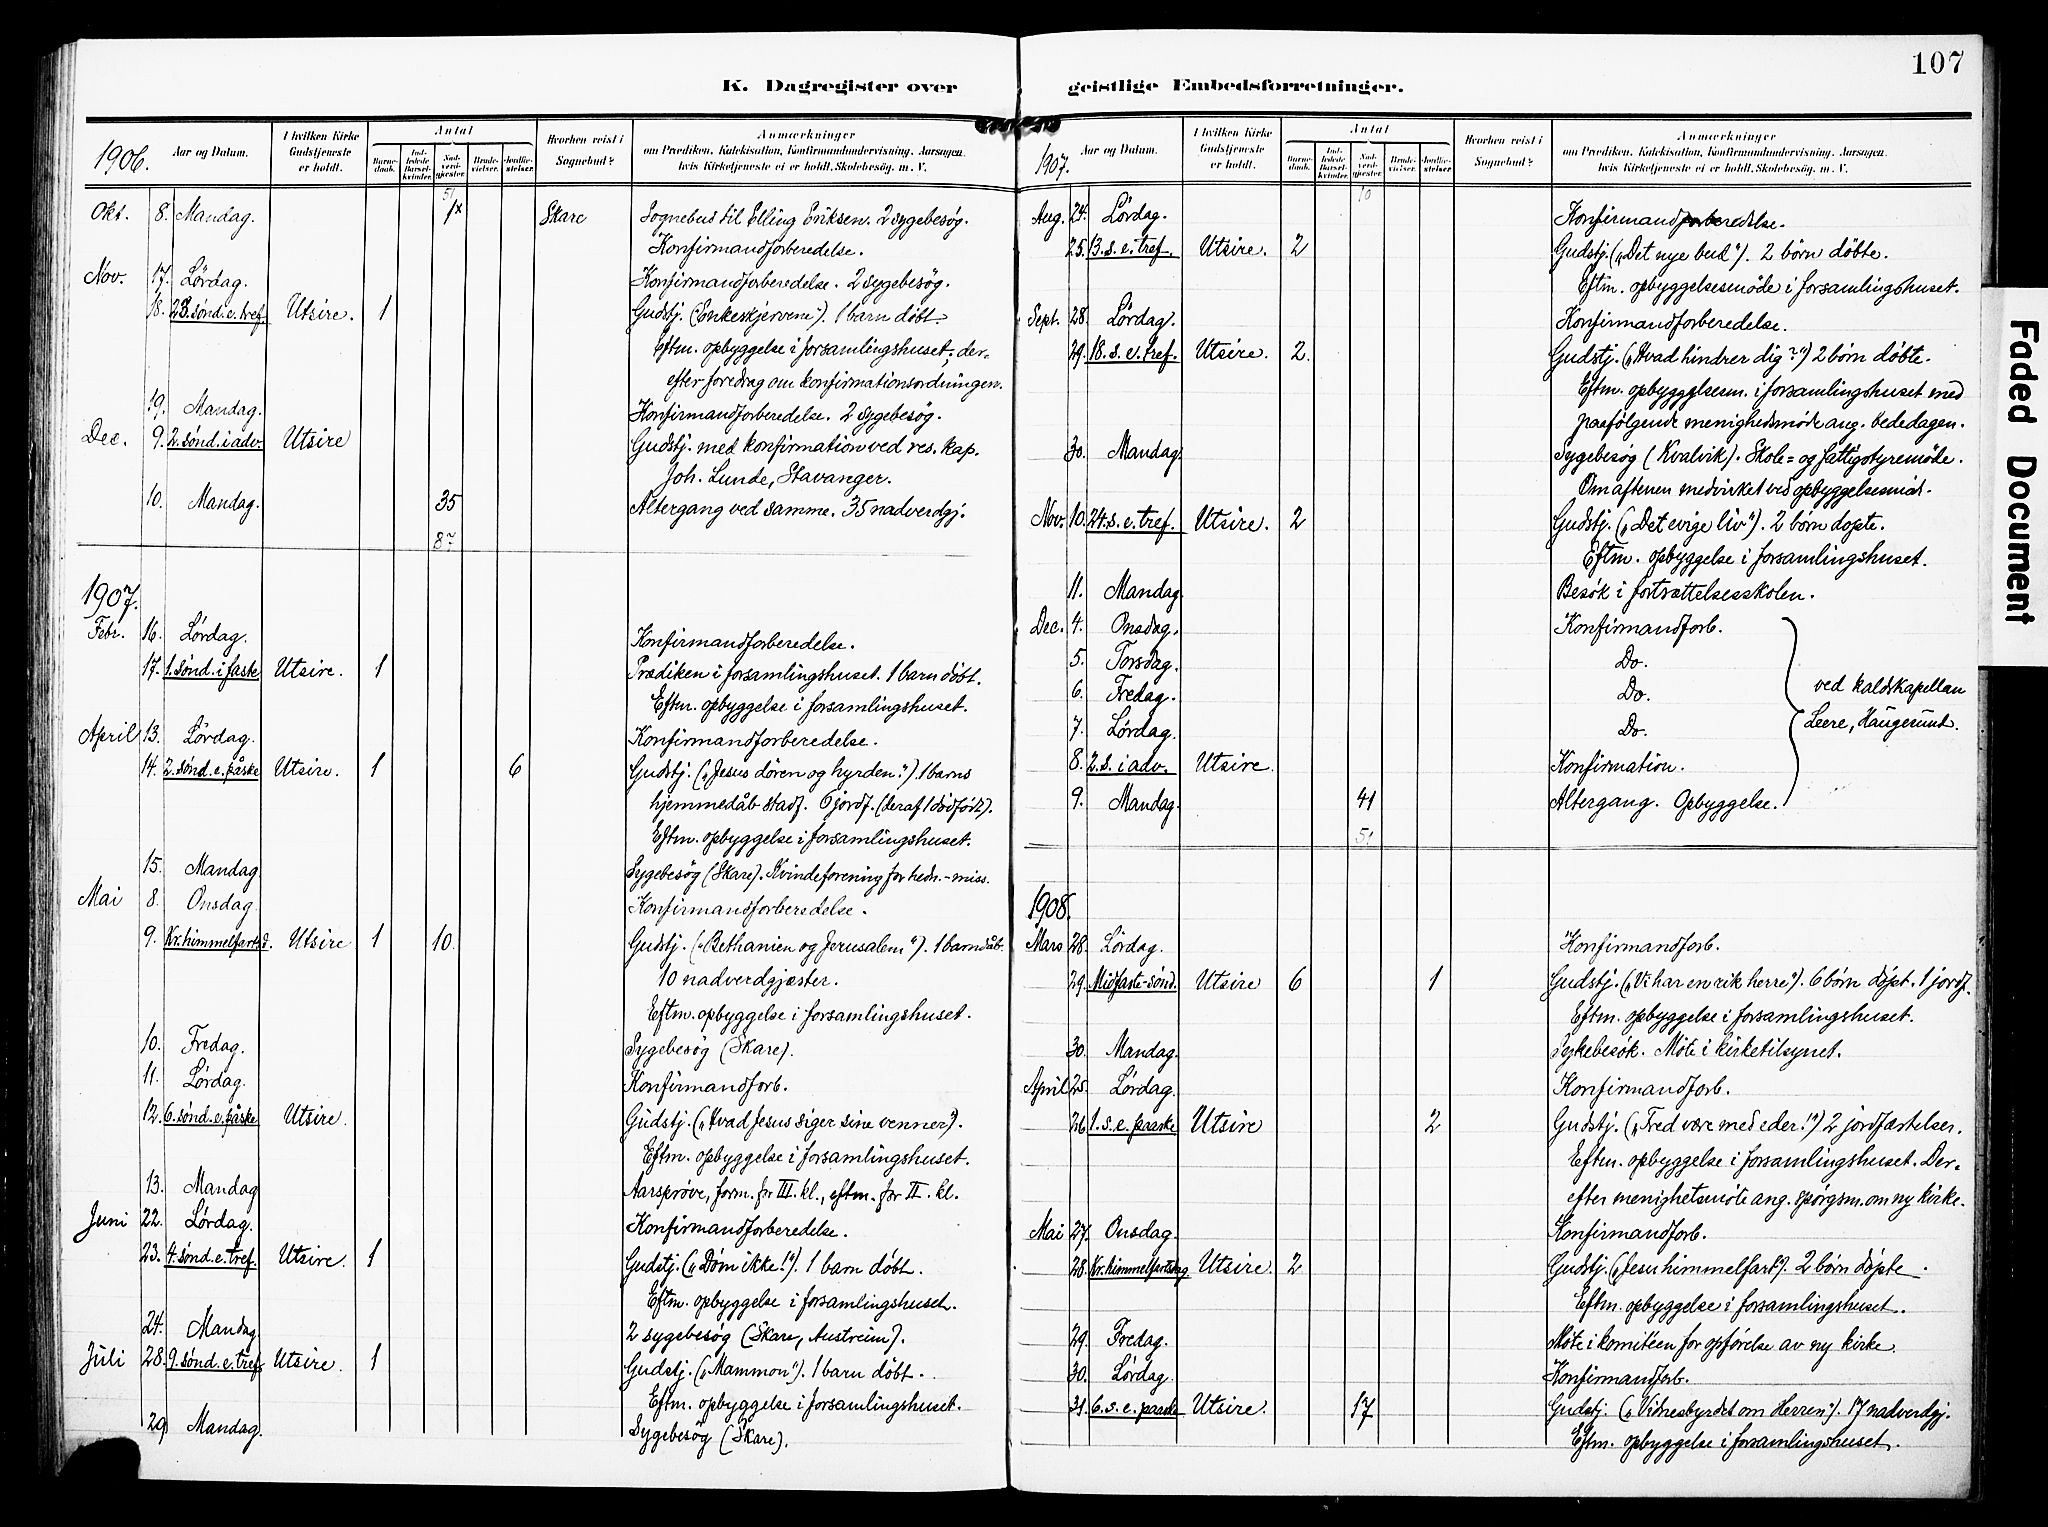 107
K. Dagregister over
1906.
Aar og Datum.
I hvilken Kirke Gudstjeneste er holdt.
Antal
Barnedaab.
Indledede Barselkvinder.
Nadverdgjester.
Brudevielser.
Jordfæstelser.
Hvorhen reist i Sognebud?
Anmærkninger
om Prædiken, Katekisation, Konfirmandundervisning, Aarsagen,
hvis Kirketjeneste ei er holdt, Skolebesøg, m. V.
51
Okt. 8. Mandag. 1x Skare Sognebud til Elling Eriksen. 2 sygebesøg.
Konfirmandforberedelse.
Nov. 17. Lørdag. Konfirmandforberedelse. 2 sygebesøg.
18. 23. sønd. e. tref. Utsire. 1 Gudstj. (Enkeskjerven"). 1 barn døbt.
Eftm. opbyggelse i forsamlingshuset, der-
efter foredrag om konfirmationsordningen.
19. Mandag. Konfirmandforberedelse. 2 sygebesøg.
Dec. 9. 2. sønd. i adv. Utsire Gudstj. med konfirmation ved res. kap.
Joh. Lunde, Stavanger.
10. Mandag. 35 Altergang ved samme. 35 nadverdgj.
87
1907.
Febr. 16. Lørdag. Konfirmandforberedelse.
17. 1. sønd. i faste Utsire. 1 Prædiken i forsamlingshuset. 1 barn døbt.
Eftm. opbyggelse i forsamlingshuset.
April 13. Lørdag. Konfirmandforberedelse.
14. 2. sønd. e. påske Utsire. 1 6 Gudstj. („Jesus døren og hyrden"). 1 barns
hjemmedåb stadf. 6 jordf. (deraf 1 dødfødt).
Eftm. opbyggelse i forsamlingshuset.
15. Mandag Sygebesøg (Skare). Kvindeforening for hedn.-miss.
Mai 8. Onsdag. Konfirmandforberedelse.
9. Kr. himmelfartsd. Utsire 1 10. Gudstj. („Bethanien og Jerusalem"). 1 barnedåb.
10 nadverdgjæster.
Eftm. opbyggelse i forsamlingshuset.
10. Fredag. Sygebesøg (Skare).
11. Lørdag. Konfirmandforb.
12. 6. sønd. e. påske Utsire. Gudstj. („Hvad Jesus siger sine venner").
Eftm. opbyggelse i forsamlingshuset.
13. Mandag Aarsprøve, form. for III. kl., eftm. for II. kl.
Juni 22. Lørdag. Konfirmandforberedelse.
23. 4. sønd. e. tref. Utsire. 1 Gudstj. („Døm ikke!"). 1 barn døbt.
Eftm. opbyggelse i forsamlingshuset.
24. Mandag 2 sygebesøg (Skare, Austreim).
Juli 28. 9. sønd. e. tref. Utsire. 1 Gudstj. („Mammon"). 1 barn døbt.
Eftm. opbyggelse i forsamlingshuset.
29 Mandag. Sygebesøg (Skare).
geistlige Embedsforretninger.
1907.
Aar og Datum.
I hvilken Kirke Gudstjeneste er holdt.
Antal
Barnedaab.
Indledede Barselkvinder.
Nadverdgjester.
Brudevielser.
Jordfæstelser.
Hvorhen reist i Sognebud?
Anmærkninger
om Prædiken, Katekisation, Konfirmandundervisning, Aarsagen,
hvis Kirketjeneste ei er holdt, Skolebesøg, m. V.
10
Aug. 24. Lørdag. Konfirmandforberedelse.
25. 13. s. e. tref. Utsire. 2 Gudstj. („Det nye bud"). 2 børn døbte.
Eftm. opbyggelsesmøde i forsamlingshuset.
Sept. 28. Lørdag. Konfirmandforberedelse.
29. 18. s. e. tref. Utsire. 2. Gudstj. („Hvad hindrer dig?") 2 børn døbte.
Eftm. opbyggelsesm. i forsamlingshuset med
paafølgende menighedsmøde ang. bededagen.
30. Mandag. Sygebesøg (Kvalvik). Skole= og fattigstyremøde.
Om aftenen medvirket ved opbyggelsesmøt.
Nov. 10. 24. s. e. tref. Utsire. 2 Gudstj. („Det evige liv"). 2 børn døpte.
Eftm. opbyggelse i forsamlingshuset.
11. Mandag. Besøk i fortsættelsesskolen.
Dec. 4. Onsdag. Konfirmandforb.
5. Torsdag. Do.
6. Fredag. Do.
7. Lørdag. Do.
ved kaldskapellan
Leere, Haugesund.
8. 2. s. i adv. Utsire. Konfirmation.
9. Mandag. 41 Altergang. Opbyggelse.
51
1908.
Mars 28. Lørdag. Konfirmandforb.
29. Midfaste-sønd. Utsire 6 1 Gudstj. („Vi har en rik herre"). 6 børn døpt. 1 jordf.
Eftm. opbyggelse i forsamlingshuset.
30. Mandag. Sykebesøk. Møte i kirketilsynet.
April 25. Lørdag. Konfirmandforb.
26. 1. s. e. paaske Utsire 2 Gudstj. („Fred være med eder!") 2 jordfæstelser.
Eftm. opbyggelse i forsamlingshuset. Der-
efter menighetsmøte ang. spørgsm. om ny kirke.
Mai 27. Onsdag. Konfirmandforb.
28. Kr. himmelfartsdag Utsire. 2 Gudstj. („Jesu himmelfart"). 2 børn døpte.
Eftm. opbyggelse i forsamlingshuset.
29. Fredag. Møte i komitéen for opførelse av ny kirke.
30. Lørdag. Konfirmandforb.
31. 6. s. e. paaske Utsire. 17 Gudstj. („Vidnesbyrdet om Herren"). 17 nadverdgj.
Eftm. opbyggelse i forsamlingshuset.
Faded Document